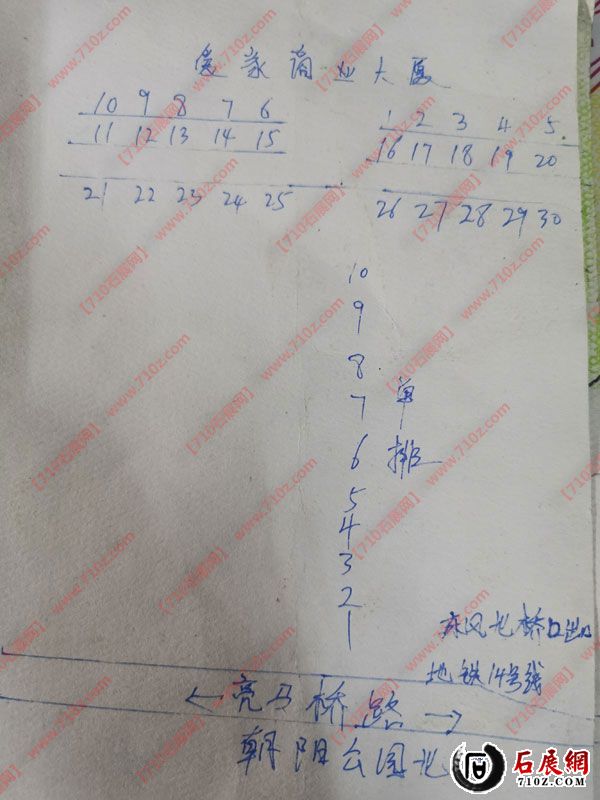 商业大厦
10 9 8 7 6
1 2 3 4 5
11 12 13 14 15
16 17 18 19 20
21 22 23 24 25
26 27 28 29 30
10
9
8
7 单
6 排
5
4
3
2
1
东风北桥口出口
地铁14号线
←亮马桥路→
朝阳公园北
石展網
710Z.COM
【710石展网】 www.710z.com